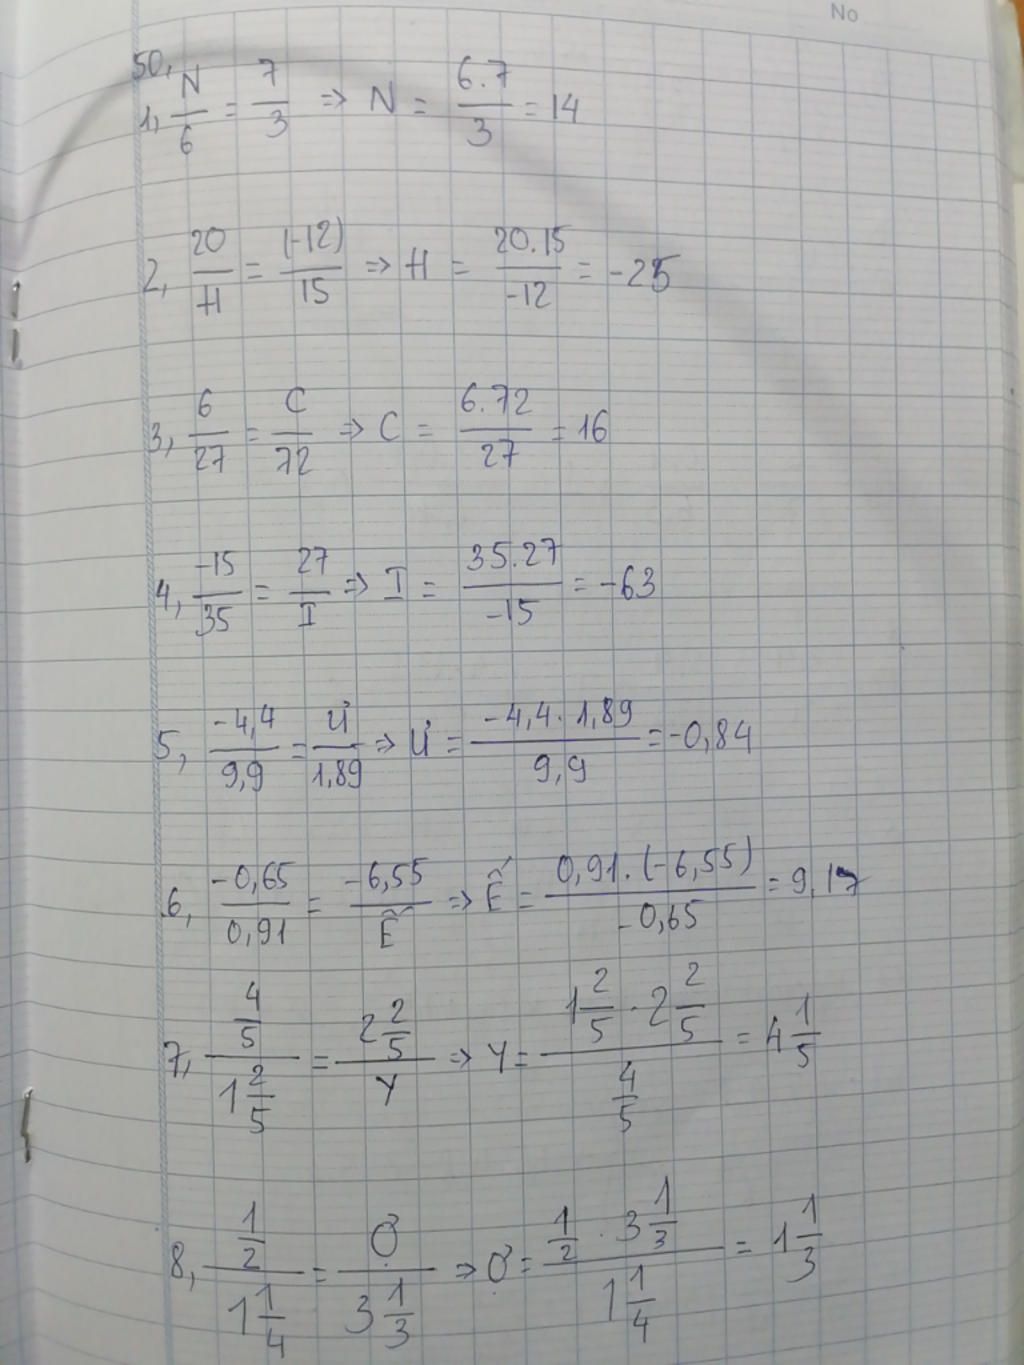 No
50,
1, N/6 = 7/3 => N = 6.7/3 = 14
2, 20/H = (-12)/15 => H = 20.15/-12 = -25
3, 6/27 = C/72 => C = 6.72/27 = 16
4, -15/35 = 27/I => I = 35.27/-15 = -63
5, -4,4/9,9 = Ư/1,89 => Ư = -4,4.1,89/9,9 = -0,84
6, -0,65/0,91 = -6,55/Ế => Ế = 0,91.(-6,55)/-0,65 = 9,17
7, 4/5 / 1 2/5 = 2 2/5 / Y => Y = 1 2/5 . 2 2/5 / 4/5 = 4 1/5
8, 1/2 / 1 1/4 = Ợ / 3 1/3 => Ợ = 1/2 . 3 1/3 / 1 1/4 = 1 1/3